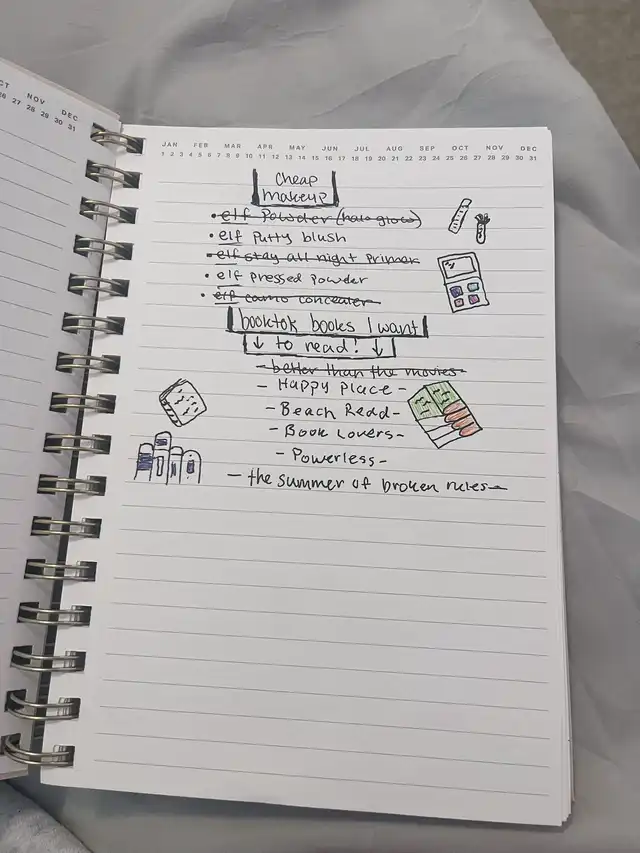 CT NOV DEC
26 27 28 29 30 31
JAN FEB MAR APR MAY JUN JUL AUG SEP OCT NOV DEC
1 2 3 4 5 6 7 8 9 10 11 12 13 14 15 16 17 18 19 20 21 22 23 24 25 26 27 28 29 30 31
Cheap
makeup
• elf powder (halo glow)
• elf putty blush
• elf stay all night primer
• elf pressed powder
• elf camo concealer
booktok books I want
↓ to read! ↓
- better than the movies -
- Happy place -
- Beach Read -
- Book Lovers -
- Powerless -
- the summer of broken rules -